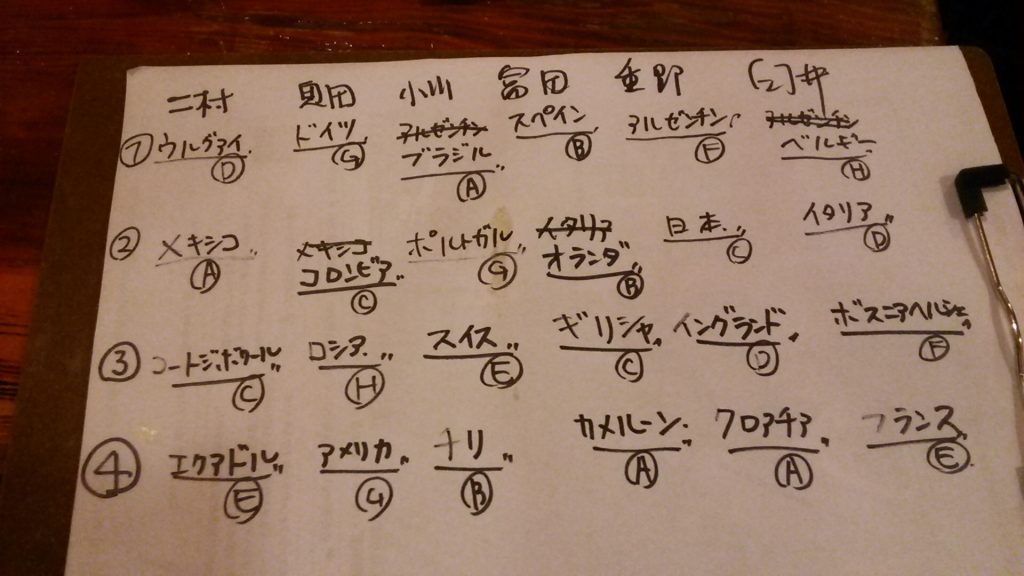 二村 貝田 小川 富田 重野 [こ]井
① ウルグアイ ドイツ アルゼンチン スペイン アルゼンチン アルゼンチン
ブラジル ベルギー
D G A B F H
② メキシコ メキシコ ポルトガル イタリア 日本 イタリア
コロンビア オランダ
A C G B C D
③ コートジボワール ロシア スイス ギリシャ イングランド ボスニアヘルシェ
C H E C D F
④ エクアドル アメリカ チリ カメルーン クロアチア フランス
E G B A A E